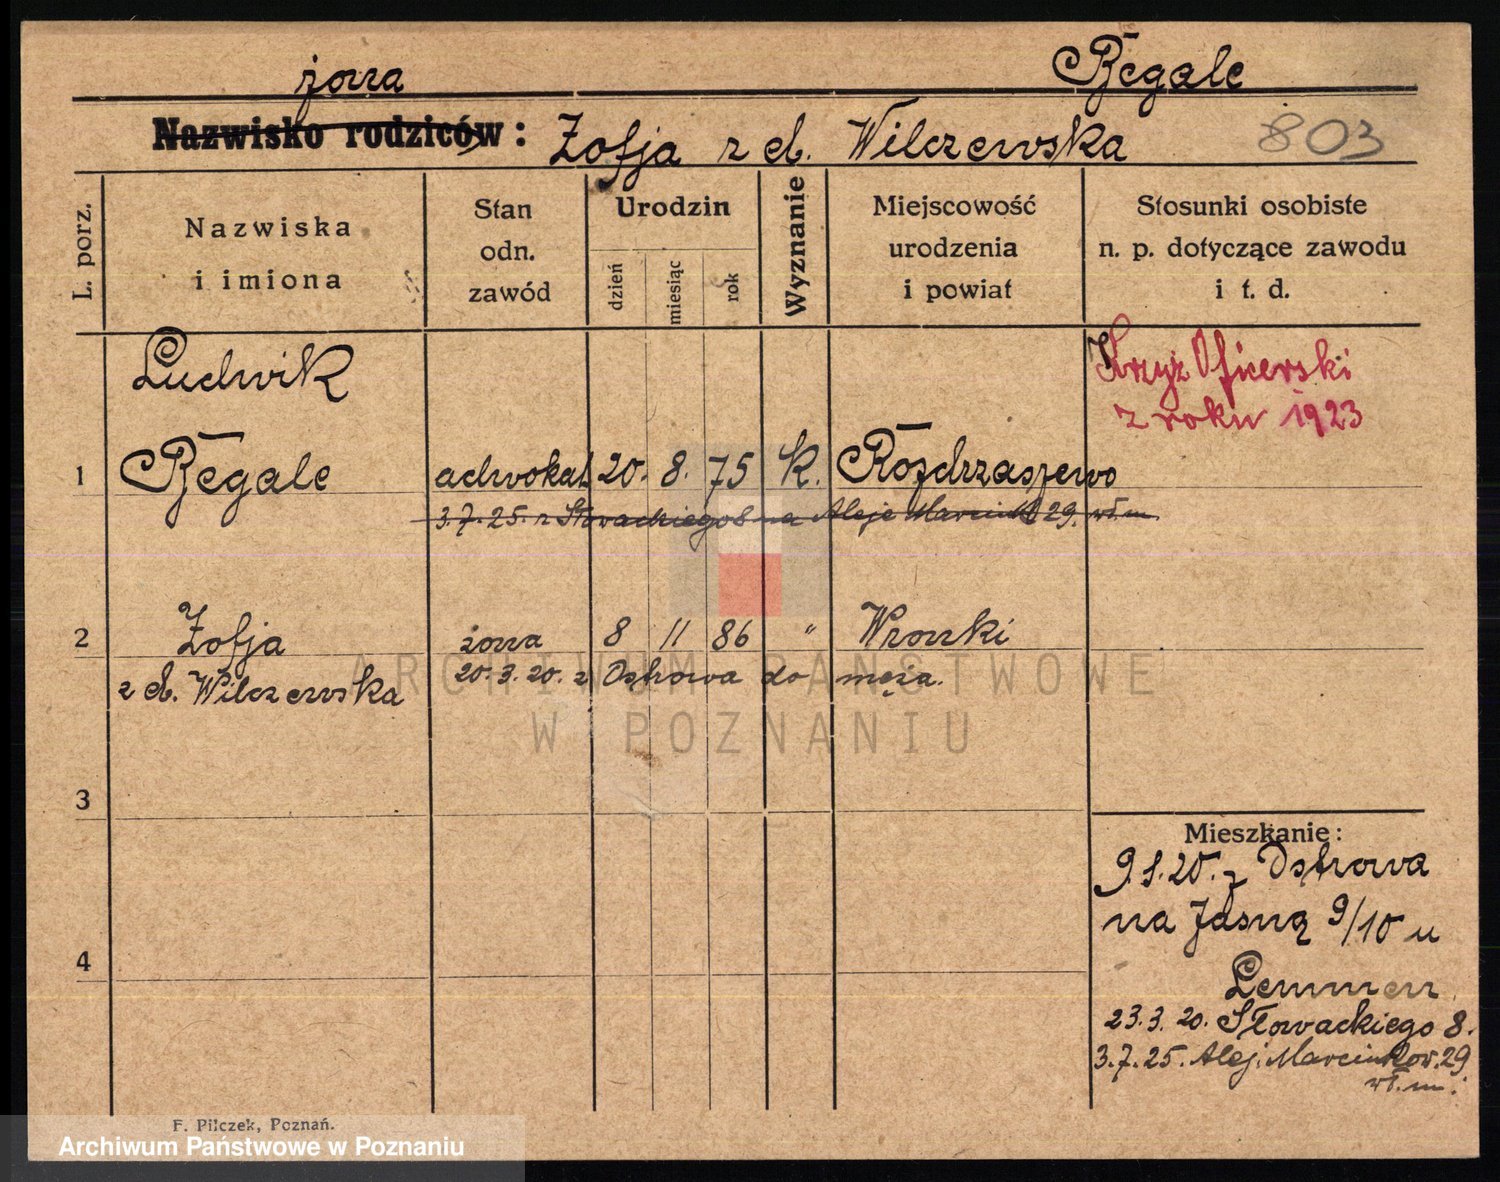 żona Bęgale
Nazwisko rodziców: Zofja z d. Wilczewska 803
L. porz.
Nazwiska
i imiona
Stan
odn.
zawód
Urodzin
dzień
miesiąc
rok
Wyznanie
Miejscowość
urodzenia
i powiat
Stosunki osobiste
n. p. dotyczące zawodu
i t. d.
Krzyż Oficerski
z roku 1923
Ludwik
1 Bęgale adwokat 20. 8. 75 K. Rozdrzaszewo
3.7.25. z Słowackiego 8 na Aleje Marcink 29. wł. m.
2 Zofja żona 8 11 86 " Wronki
z d. Wilczewska 20. 3. 20. z Ostrowa do męża.
ARCHIWUM PAŃSTWOWE
W POZNANIU
3
4
Mieszkanie:
9.1.20. z Ostrowa
na Jasną 9/10 u
Lemmen
23. 3. 20. Słowackiego 8.
3.7.25. Alej. Marcinkow. 29
wł. m.
F. Pilczek, Poznań.
Archiwum Państwowe w Poznaniu